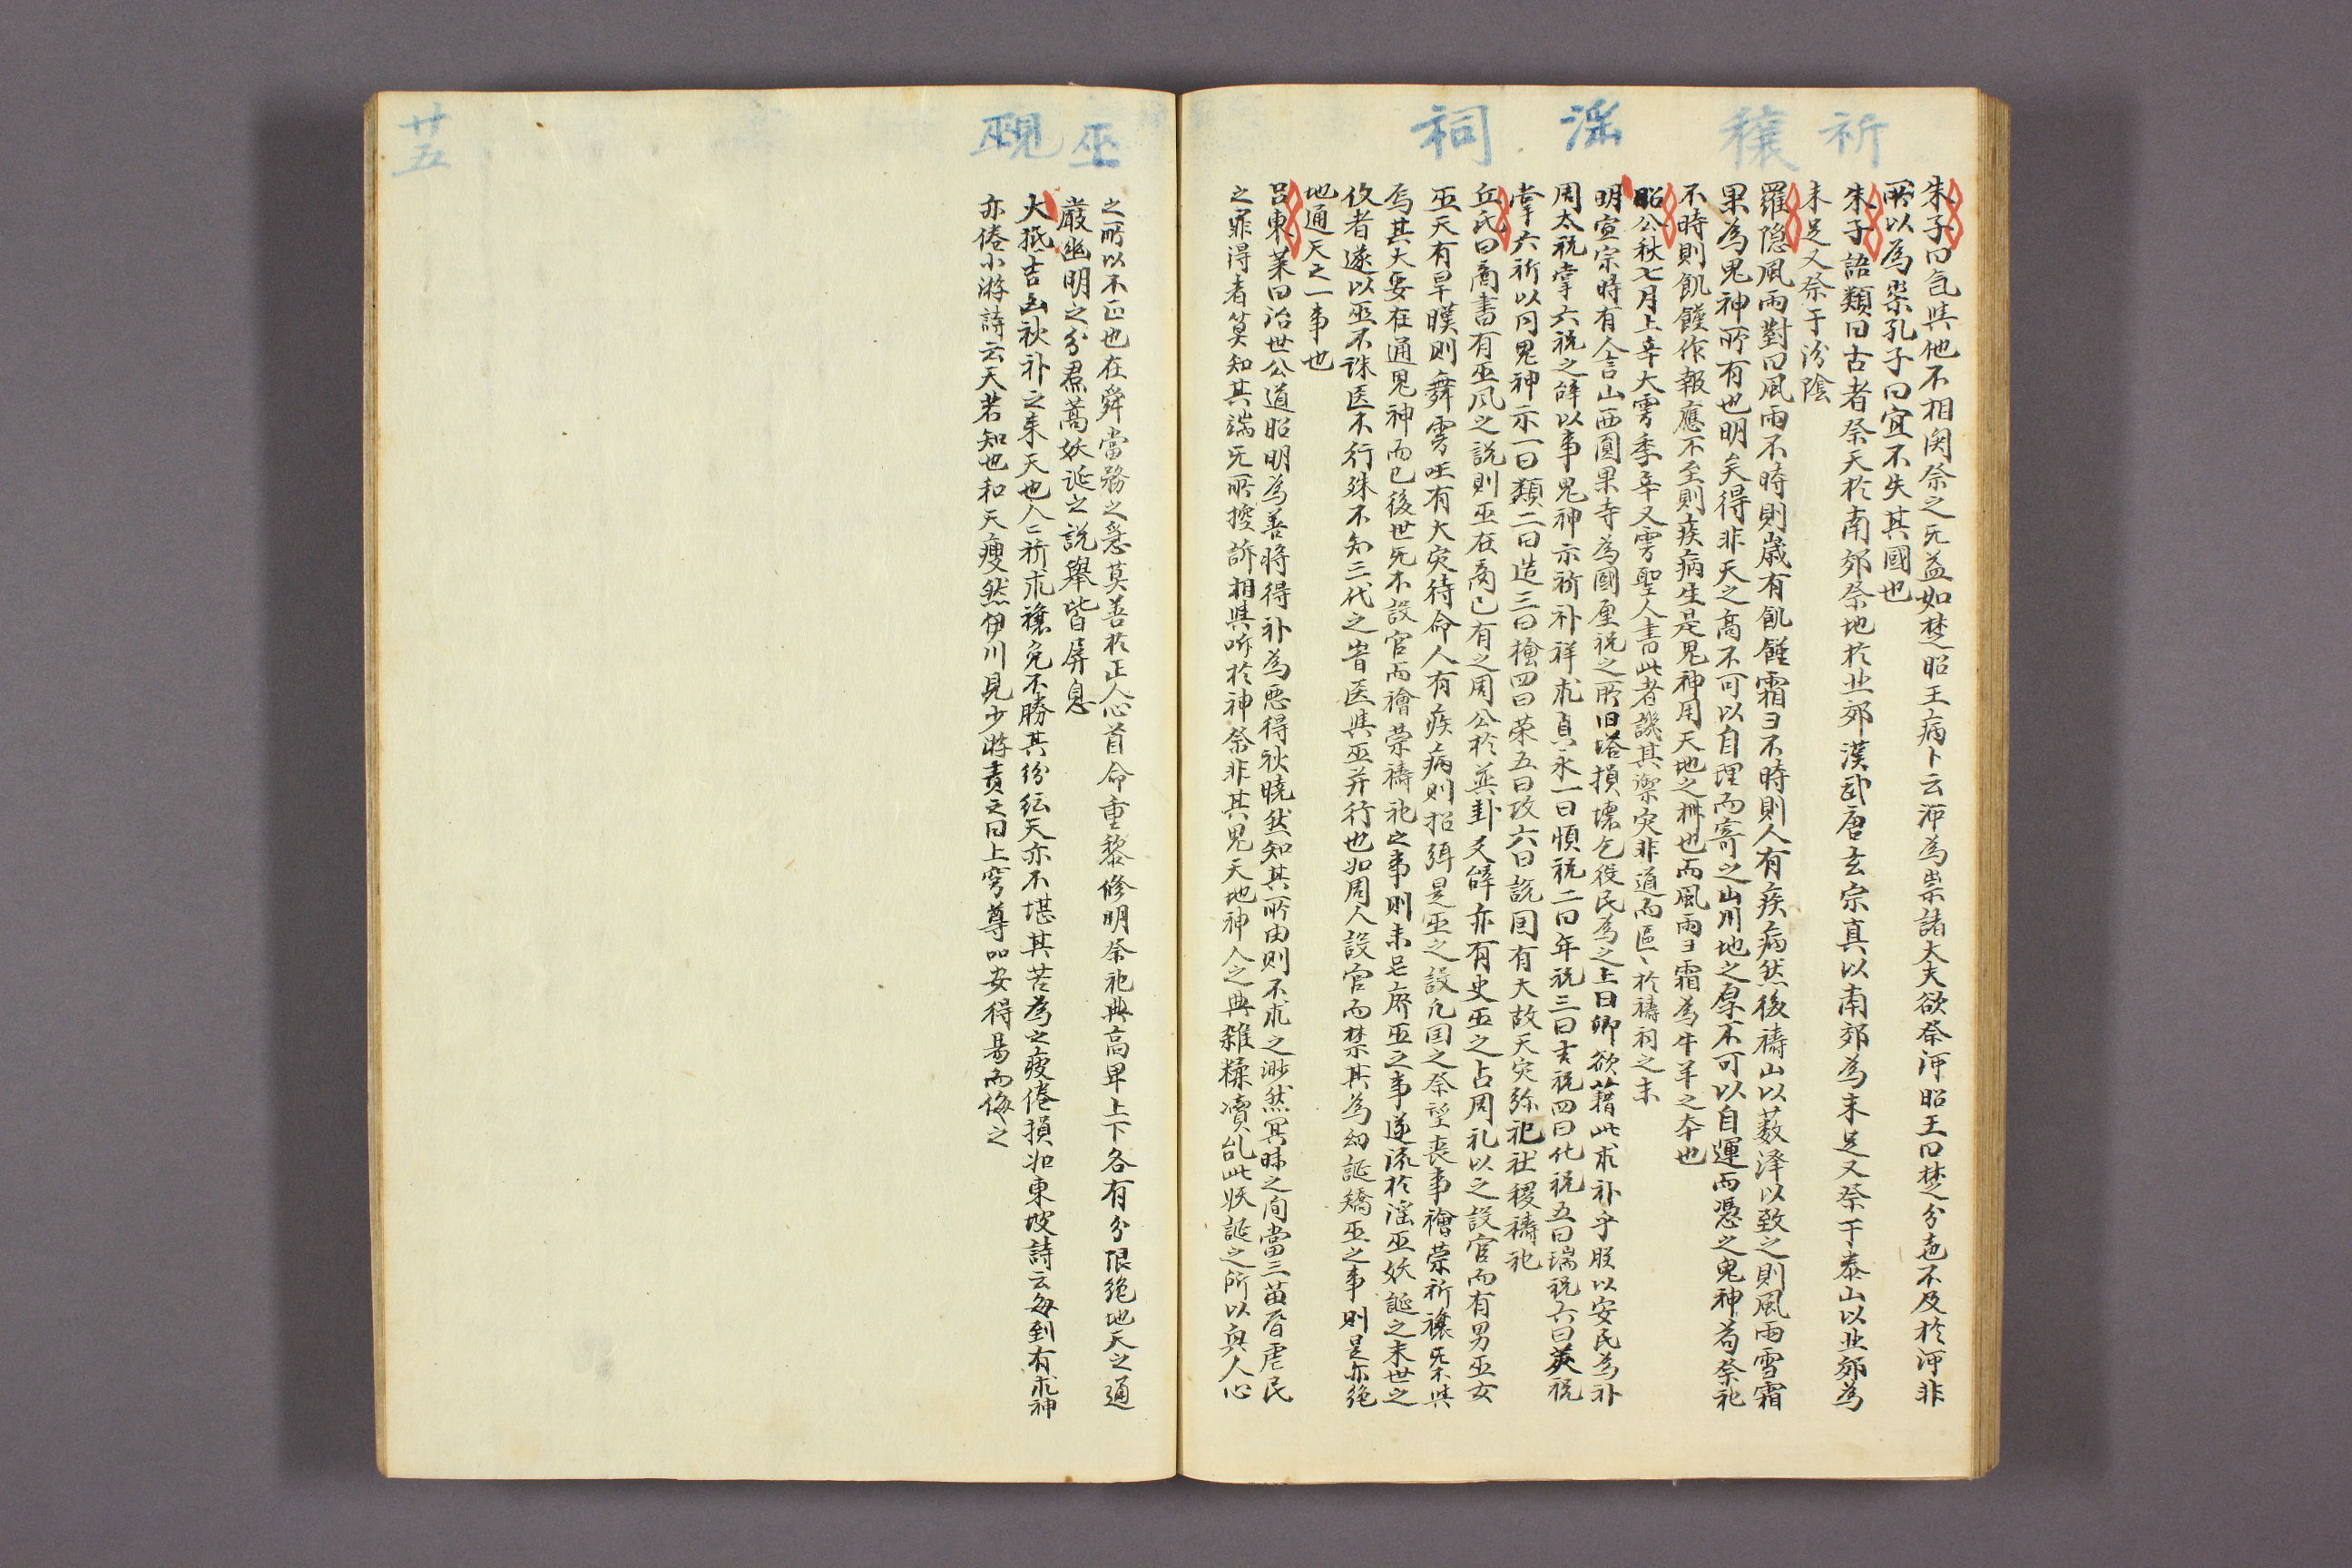 祈穰
淫祠
朱子曰气與他不相関祭之无益如楚昭王病卜云沛為祟諸大夫欲祭河昭王曰楚分地不及於河非
所以為祟孔子曰宜不失其國也
朱子語類曰古者祭天於南郊祭地於北郊漢武唐玄宗真以南郊為未足又祭于泰山以北郊為
未足又祭于汾陰
羅隐風雨對曰風雨不時則歳有飢饉霜ヨ不時則人有疾病然後禱山以薮泽以致之則風雨雪霜
果為鬼神所有也明矣得非天之髙不可以自理而寄之山川地之厚不可以自運而憑之鬼神苟祭祀
不時則飢饉作報應不至則疾病生是鬼神用天地之柄也而風雨ヨ霜為牛羊之本也
昭公秋七月上辛大雩季辛又雩聖人書此者譏其禦灾非道而區〻於禱祠之末
明宣宗時有人言山西圓果寺為國厘祝之所旧塔損壊乞役民為之上曰卿欲藉此求补乎朕以安民為补
周太祝掌六祝之辝以事鬼神示祈补祥求貞永一曰順祝二曰年祝三曰吉祝四曰化祝五曰瑞祝六曰䇲祝
掌六祈以同鬼神示一曰類二曰造三曰禬四曰禜五曰攻六曰說囯有大故天灾弥祀社稷禱祀
丘氏曰商書有巫风之説則巫在商已有之周公於巽卦爻辝亦有史巫之占周礼以之設官而有男巫女
巫天有旱暵則舞雩囯有大灾待命人有疾病則招弭是巫之設凡囯之祭望喪事禬禜祈禳无不與
焉其大要在通鬼神而已後世无不設官而禬禜禱祀之事則未尝廃巫之事遂流於淫巫妖誕之末世之
攸者遂以巫不誅医不行殊不知三代之峕医與巫并行也如周人設官而禁其為幻誕矯巫之事則是亦絶
地通天之一事也
吕東莱曰治世公道昭明為善将得补為悪得秋曉然知其所由則不求之渺然冥昧之间當三苗昏虐民
之罪得者莫知其端无所控訴相與听於神祭非其鬼天地神人之典雜糅凟乱此妖誕之所以兴人心
巫覡
廿五
之所以不正也在舜當務之急莫善於正人心首命重黎修明祭祀典高卑上下各有分限絶地天之通
嚴幽明之分焄蒿妖诞之説舉皆屏息
大抵吉凶秋补之来天也人〻祈求禳免不勝其纷纭天亦不堪其苦為之疲倦損如東坡詩云每到有求神
亦倦小游詩云天若知也和天瘦然伊川見少游責之曰上穹尊㕥安得易而侮之